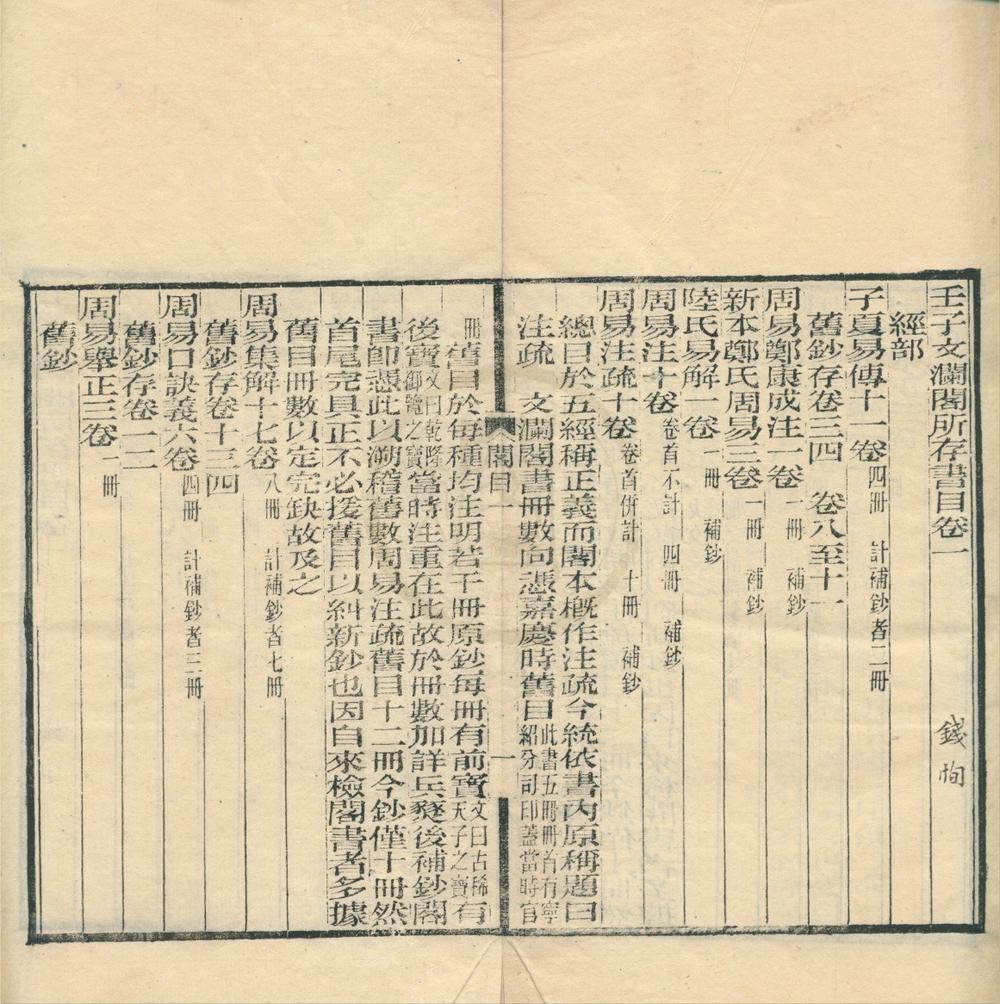 壬子文瀾閣所存書目卷一
錢恂
經部
子夏易傳十一卷 四冊 計補鈔者二冊
舊鈔存卷三四 卷八至十一
周易鄭康成注一卷 一冊 補鈔
新本鄭氏周易三卷 一冊 補鈔
陸氏易解一卷 一冊 補鈔
周易注十卷 卷首不計 四冊 補鈔
周易注疏十卷 卷首併計 十冊 補鈔
總目於五經稱正義而閣本槪作注疏今統依書內原稱題曰
注疏 文瀾閣書冊數向憑嘉慶時舊目 此書五冊冊首有寧紹分司印蓋當時官
冊 舊目於每種均注明若干冊原鈔每冊有前寶 文曰古稀天子之寶 有
閣目一 一
後寶 文曰乾隆御覽之寶 當時注重在此故於冊數加詳兵燹後補鈔閣
書卽憑此以溯稽舊數周易注疏舊目十二冊今鈔僅十冊然
首尾完具正不必援舊目以糾新鈔也因自來檢閣書者多據
舊目冊數以定完缺故及之
周易集解十七卷 八冊 計補鈔者七冊
舊鈔存卷十三四
周易口訣義六卷 四冊 計補鈔者三冊
舊鈔存卷一二
周易舉正三卷 一冊
舊鈔